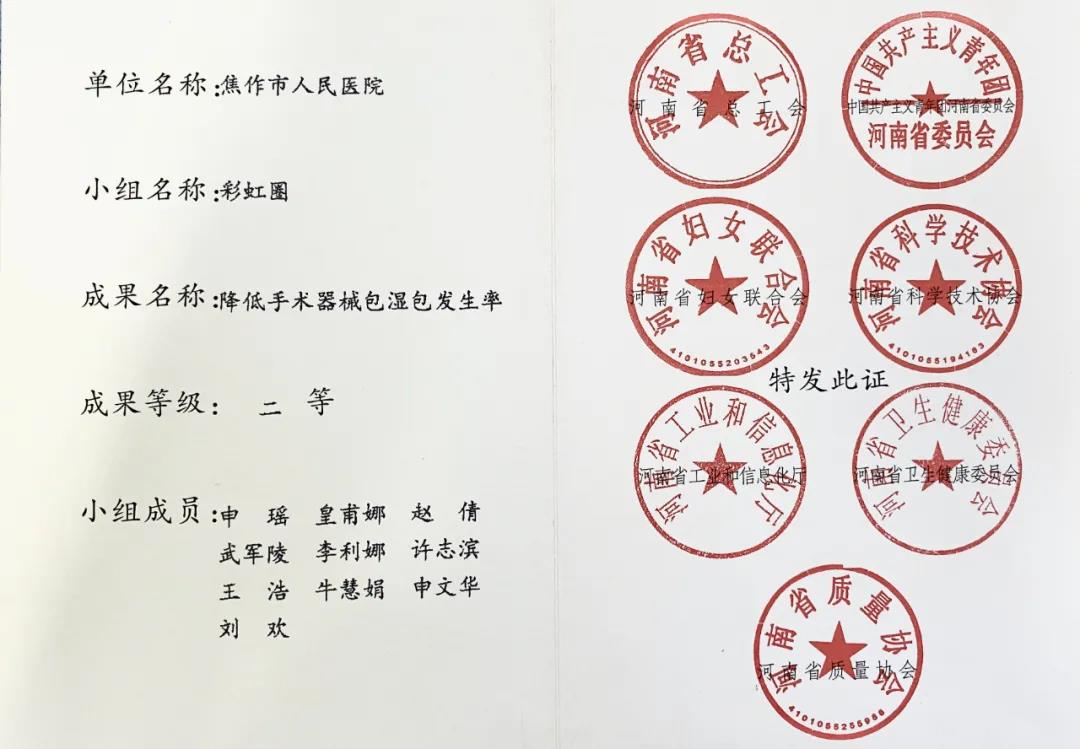 单位名称:焦作市人民医院
小组名称:彩虹圈
成果名称:降低手术器械包湿包发生率
成果等级: 二 等
小组成员:申 瑶 皇甫娜 赵 倩
武军陵 李利娜 许志滨
王 浩 牛慧娟 申文华
刘 欢
河南省总工会
河南省总工会
中国共产主义青年团
中国共产主义青年团河南省委员会
河南省委员会
河南省妇女联合会
河南省妇女联合会
4101055203543
河南省科学技术协会
河南省科学技术协会
4101055194163
特发此证
河南省工业和信息化厅
河南省工业和信息化厅
河南省卫生健康委员会
河南省卫生健康委员会
河南省质量协会
河南省质量协会
4101055255988